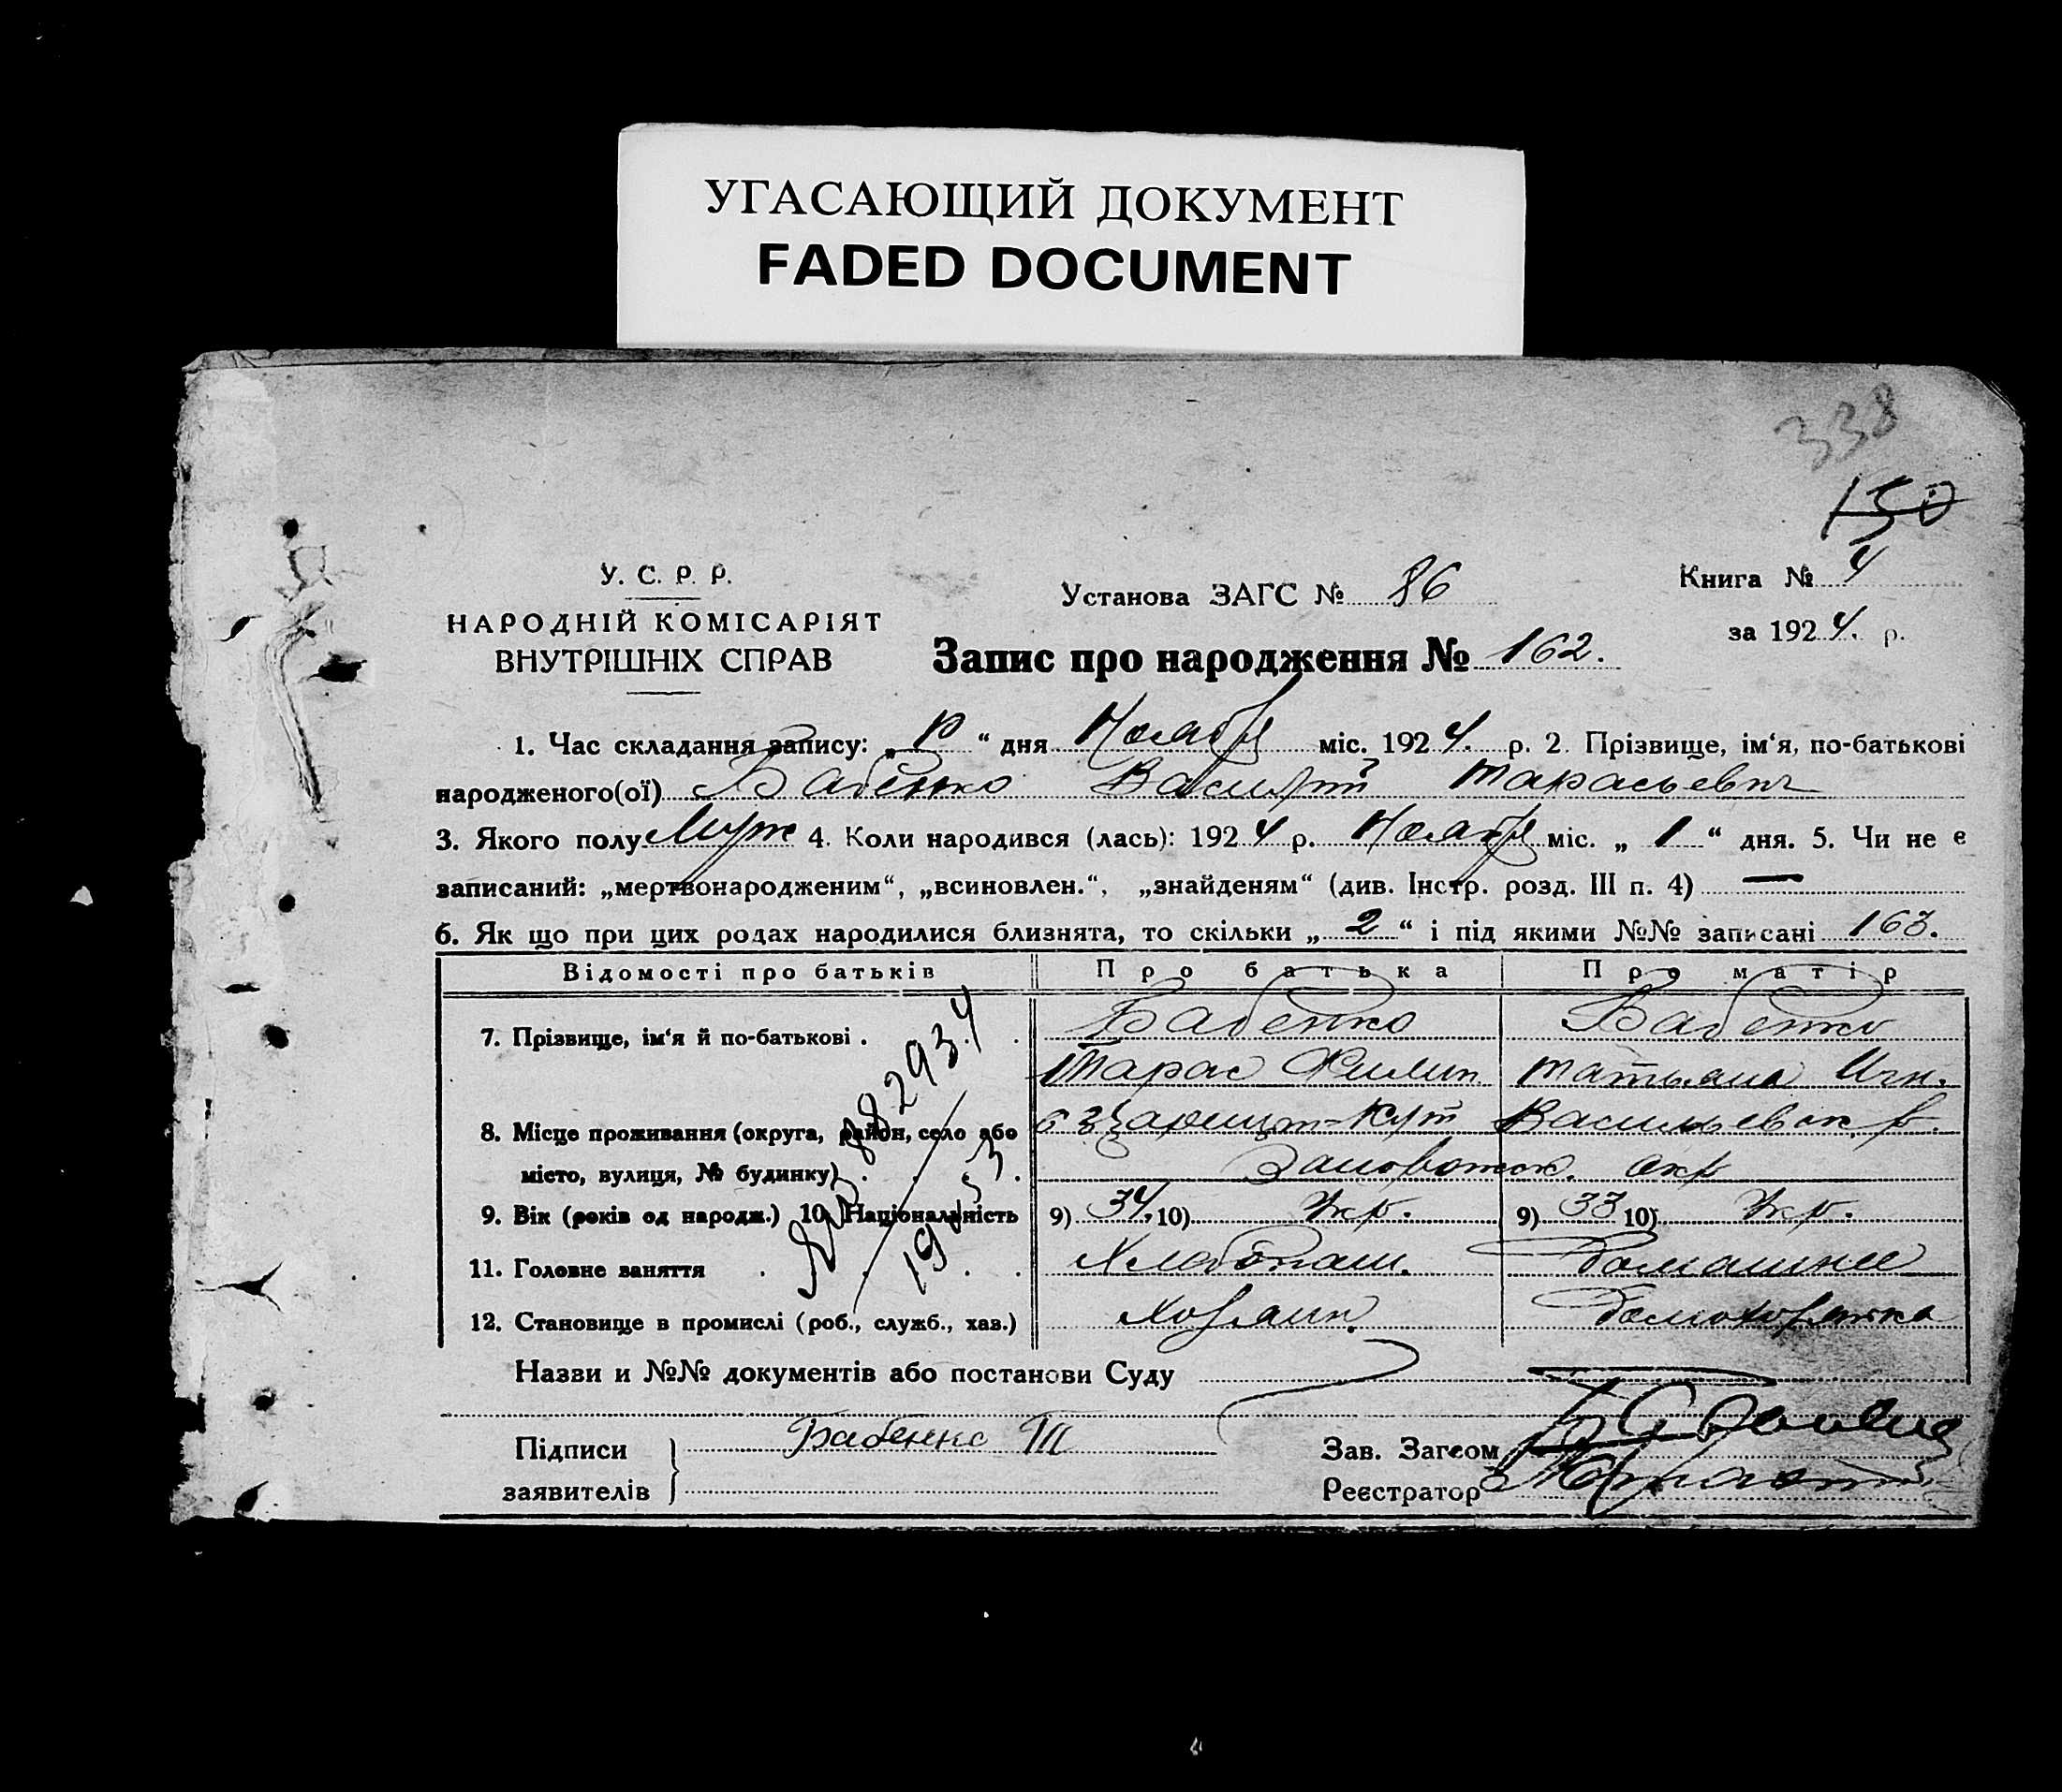 УГАСАЮЩИЙ ДОКУМЕНТ
FADED DOCUMENT
338
150
У. С. Р. Р.
НАРОДНІЙ КОМІСАРІЯТ
ВНУТРІШНІХ СПРАВ
Установа ЗАГС № 86
Книга № 4
за 1924. р.
Запис про народження № 162.
1. Час складання запису: „ “ дня Ноября міс. 1924. р. 2. Прізвище, ім‘я, по-батькові
народженого(ої) Бабенко Василий Тарасьевич
3. Якого полу Муж 4. Коли народився (лась): 1924 р. Ноября міс. „ 1 “ дня. 5. Чи не є
записаний: „мертвонародженим“, „всиновлен.“, „знайденям“ (див. Інстр. розд. III п. 4) —
6. Як що при цих родах народилися близнята, то скільки „ 2 “ і під якими №№ записані 163.
Відомості про батьків Про батька Про матір
7. Прізвище, ім‘я й по-батькові . . Бабенко Бабенко
Тарас Филип Татьяна Игн.
8. Місце проживання (округа, район, село або Васильевск. р.
місто, вулиця, № будинку) . . . Запорожск. окр
882934
1953
9. Вік (років од народж.) 10. Національність 9) 34, 10) Укр. 9) 33 10) Укр.
11. Головне заняття . . . . Хлебопаш. Домашнее
12. Становище в промислі (роб., служб., хаз.) Хозяин. Домохозяйка
Назви и №№ документів або постанови Суду
Підписи Бабенко Т
заявителів
Зав. Загсом
Реєстратор